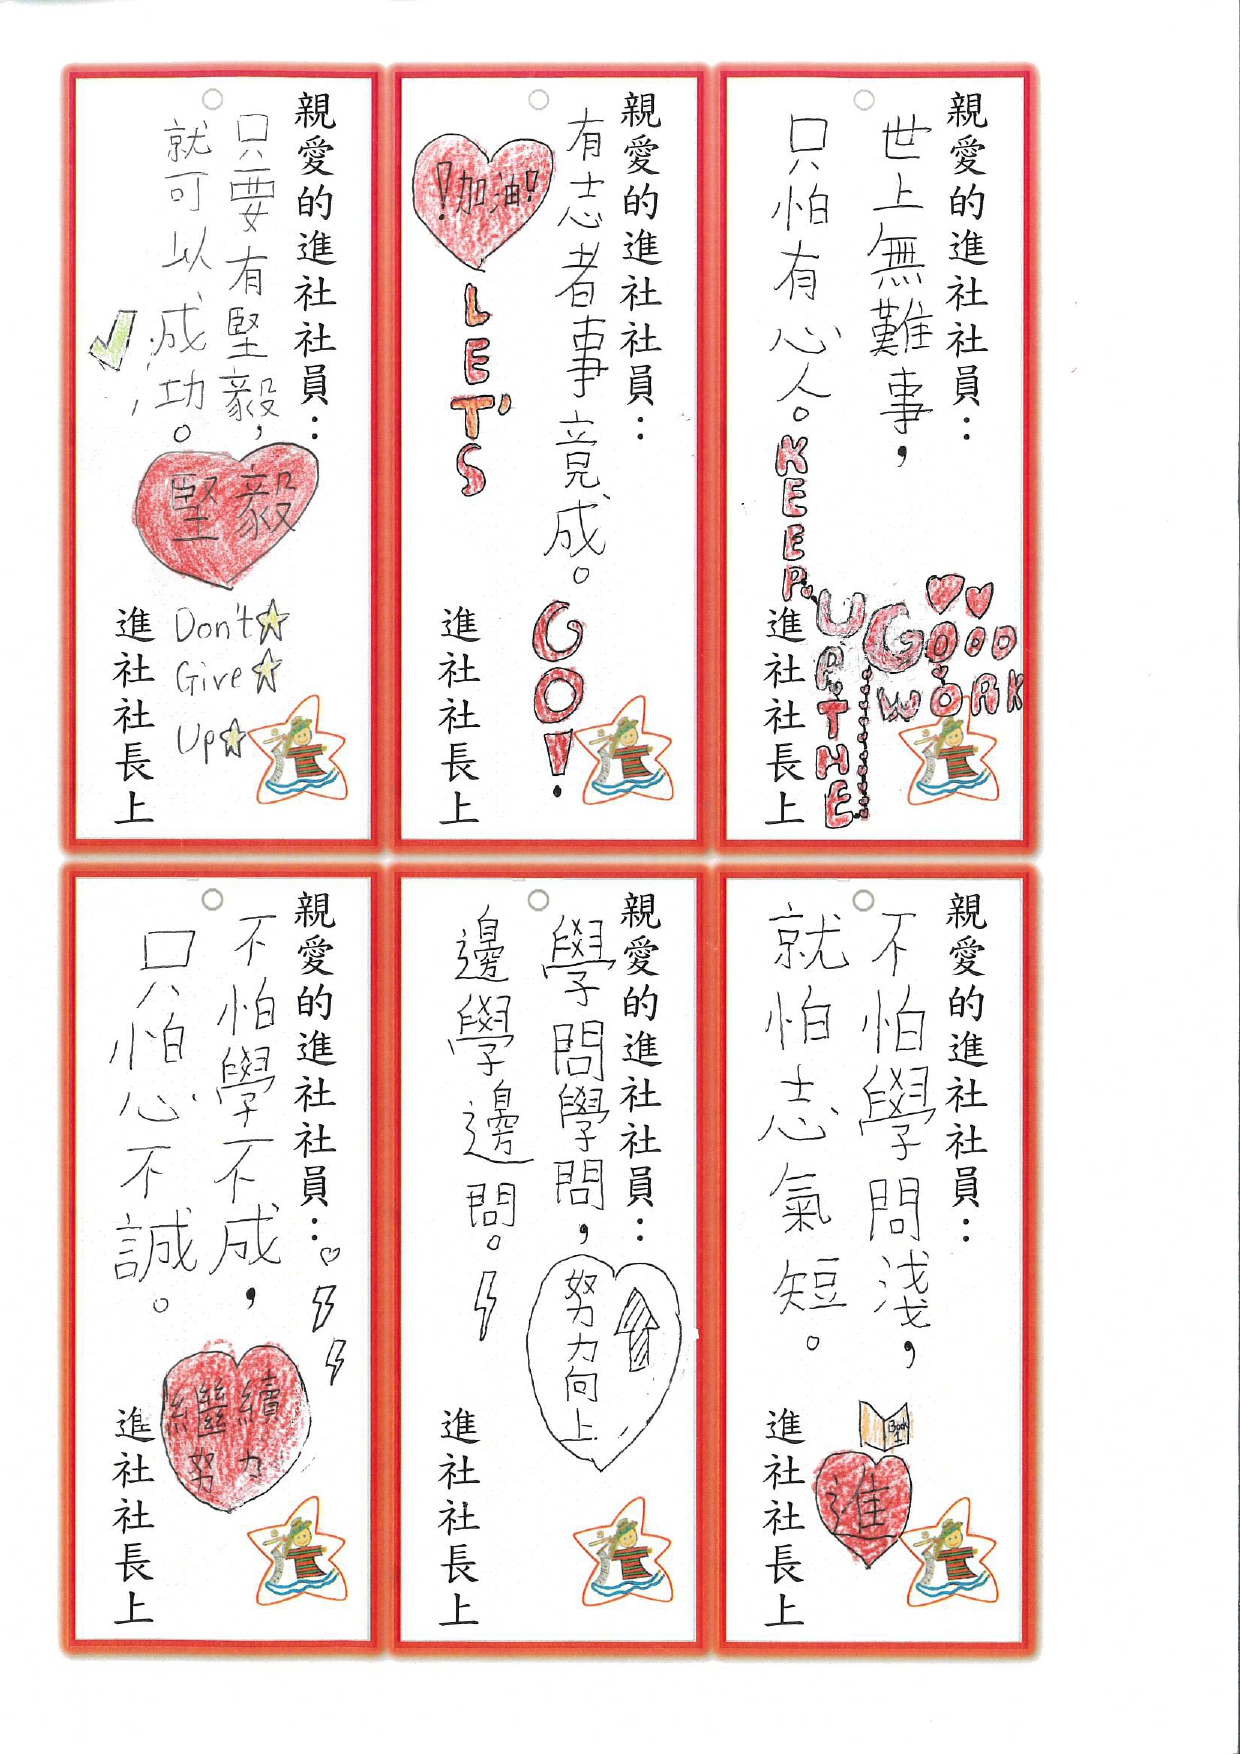 親愛的進社社員：
世上無難事，
只怕有心人。
KEEP
UP THE
GOOD
WORK
進社社長上
親愛的進社社員：
有志者事竟成。
!加油!
LET'S
GO!
進社社長上
親愛的進社社員：
只要有堅毅，
就可以成功。
堅毅
Don't
Give
Up
進社社長上
親愛的進社社員：
不怕學問淺，
就怕志氣短。
Book
1
進
進社社長上
親愛的進社社員：
學問學問，
邊學邊問。
努力向上
進社社長上
親愛的進社社員：
不怕學不成，
只怕心不誠。
繼續
努力
進社社長上